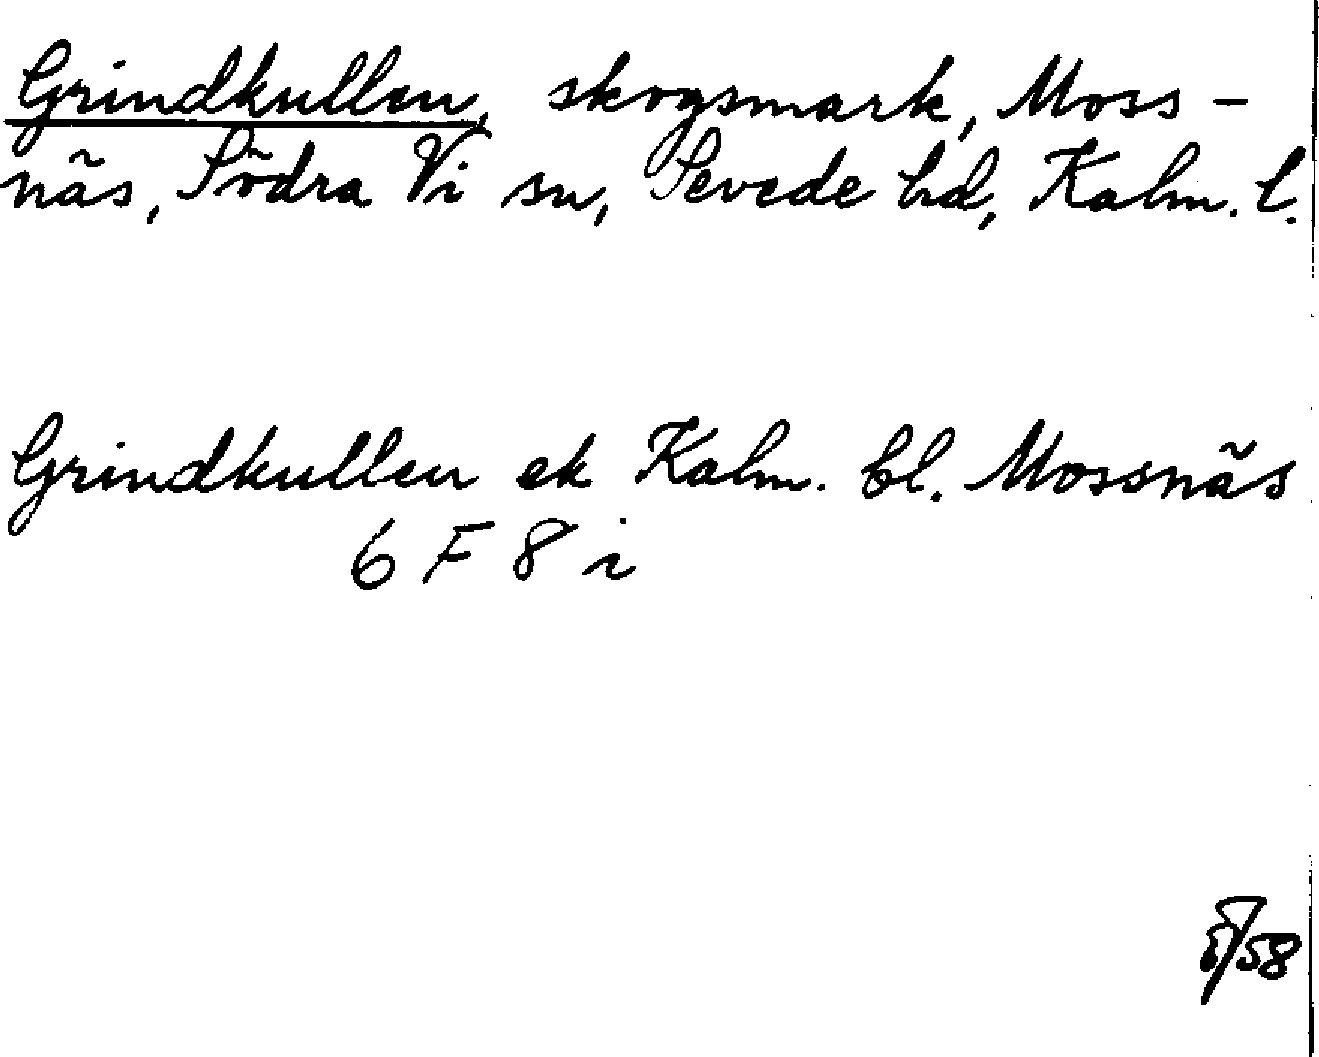 Grindkullen, skogsmark, Moss-
näs, Södra Vi sn, Sevede hd, Kalm. l.
Grindkullen ek Kalm. bl. Mossnäs
6 F 8 i
/58